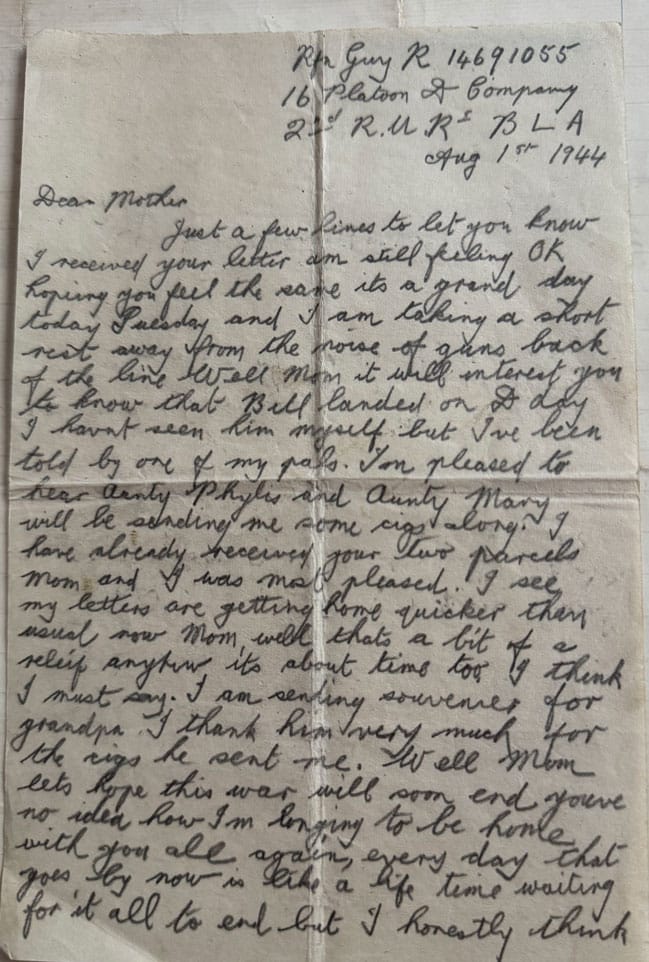 Rfn Guy R 14691055
16 Platoon D Company
2nd R.U.Rs B L A
Aug 1st 1944
Dear Mother
Just a few lines to let you know
I received your letter am still feeling OK
hoping you feel the same its a grand day
today Tuesday and I am taking a short
rest away from the noise of guns back
of the line Well Mom it will interest you
to know that Bill landed on D day
I havnt seen him myself but I've been
told by one of my pals. I'm pleased to
hear Aunty Phylis and Aunty Mary
will be sending me some cigs along. I
have already received your two parcels
Mom and I was most pleased. I see
my letters are getting home quicker than
usual now Mom, well thats a bit of a
releif anyhow its about time too I think
I must say. I am sending souvenier for
grandpa I thank him very much for
the cigs he sent me. Well Mom
lets hope this war will soon end youve
no idea how I'm longing to be home
with you all again, every day that
goes by now is like a life time waiting
for it all to end but I honestly think